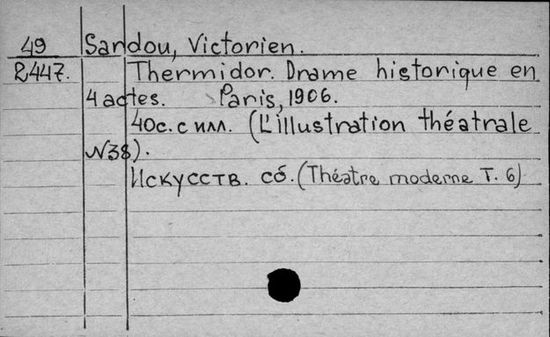 49 Sardou, Victorien.
2447. Thermidor. Drame historique en
4 actes. Paris, 1906.
40с. с илл. (L'illustration théatrale
N38).
Искусств. сб. (Théatre moderne T. 6)